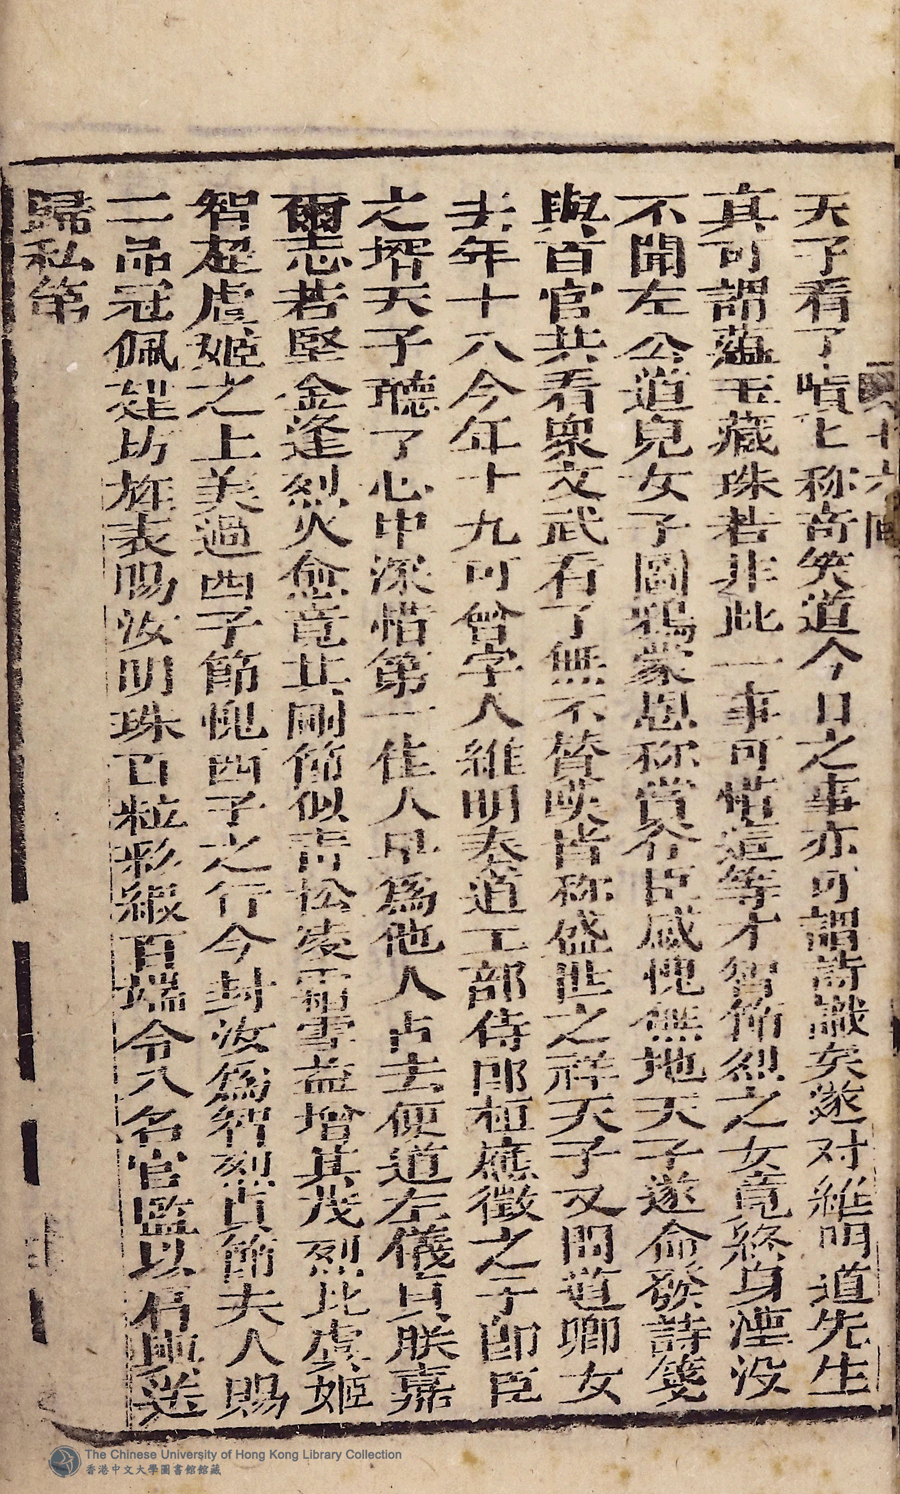 天子看了嘖七称奇笑道今日之事亦可謂詩讖矣遂对維明道先生
真可謂蘊玉藏珠若非此一事可惜這等才智節烈之女竟終身湮没
不聞左公道兒女子圖鴉蒙恩称賞令臣感愧無地天子遂命發詩箋
與百官共看衆文武看了無不贊嘆皆称盛世之祥天子又問道卿女
去年十八今年十九可曾字人維明奏道工部侍郎桓應徵之子即臣
之壻天子聽了心中深惜第一佳人早爲他人占去便道左儀貞朕嘉
爾志若堅金逢烈火愈竟其剛節似靑松凌霜雪益增其茂烈比虞姬
智超虞姬之上美過西子節愧西子之行今封汝爲智烈貞節夫人賜
二品冠佩建坊旌表賜汝明珠百粒彩縀百端令八名官監以肩輿送
歸私第
十六回
The Chinese University of Hong Kong Library Collection
香港中文大學圖書館館藏